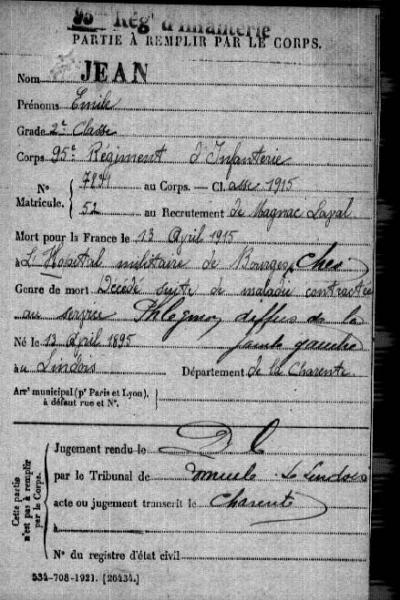 95e Rég.t d'Infanterie
PARTIE À REMPLIR PAR LE CORPS.
Nom JEAN
Prénoms Emile
Grade 2e Classe
Corps 95e Régiment d'Infanterie
N° Matricule. 7841 au Corps. — Classe 1915
52 au Recrutement de Magnac Laval
Mort pour la France le 13 April 1915
à L'Hopital militaire de Bourges, Cher
Genre de mort Décédé suite de maladie contractée
au service Phlegmon diffus de la
jambe gauche
Né le 13 April 1895
au Lindois Département de la Charente
Arrt municipal (pr Paris et Lyon),
à défaut rue et N°.
Cette partie n'est pas à remplir par le Corps.
Jugement rendu le
par le Tribunal de Le Lindois
acte ou jugement transcrit le Charente
à
N° du registre d'état civil
534-708-1921. [26434.]